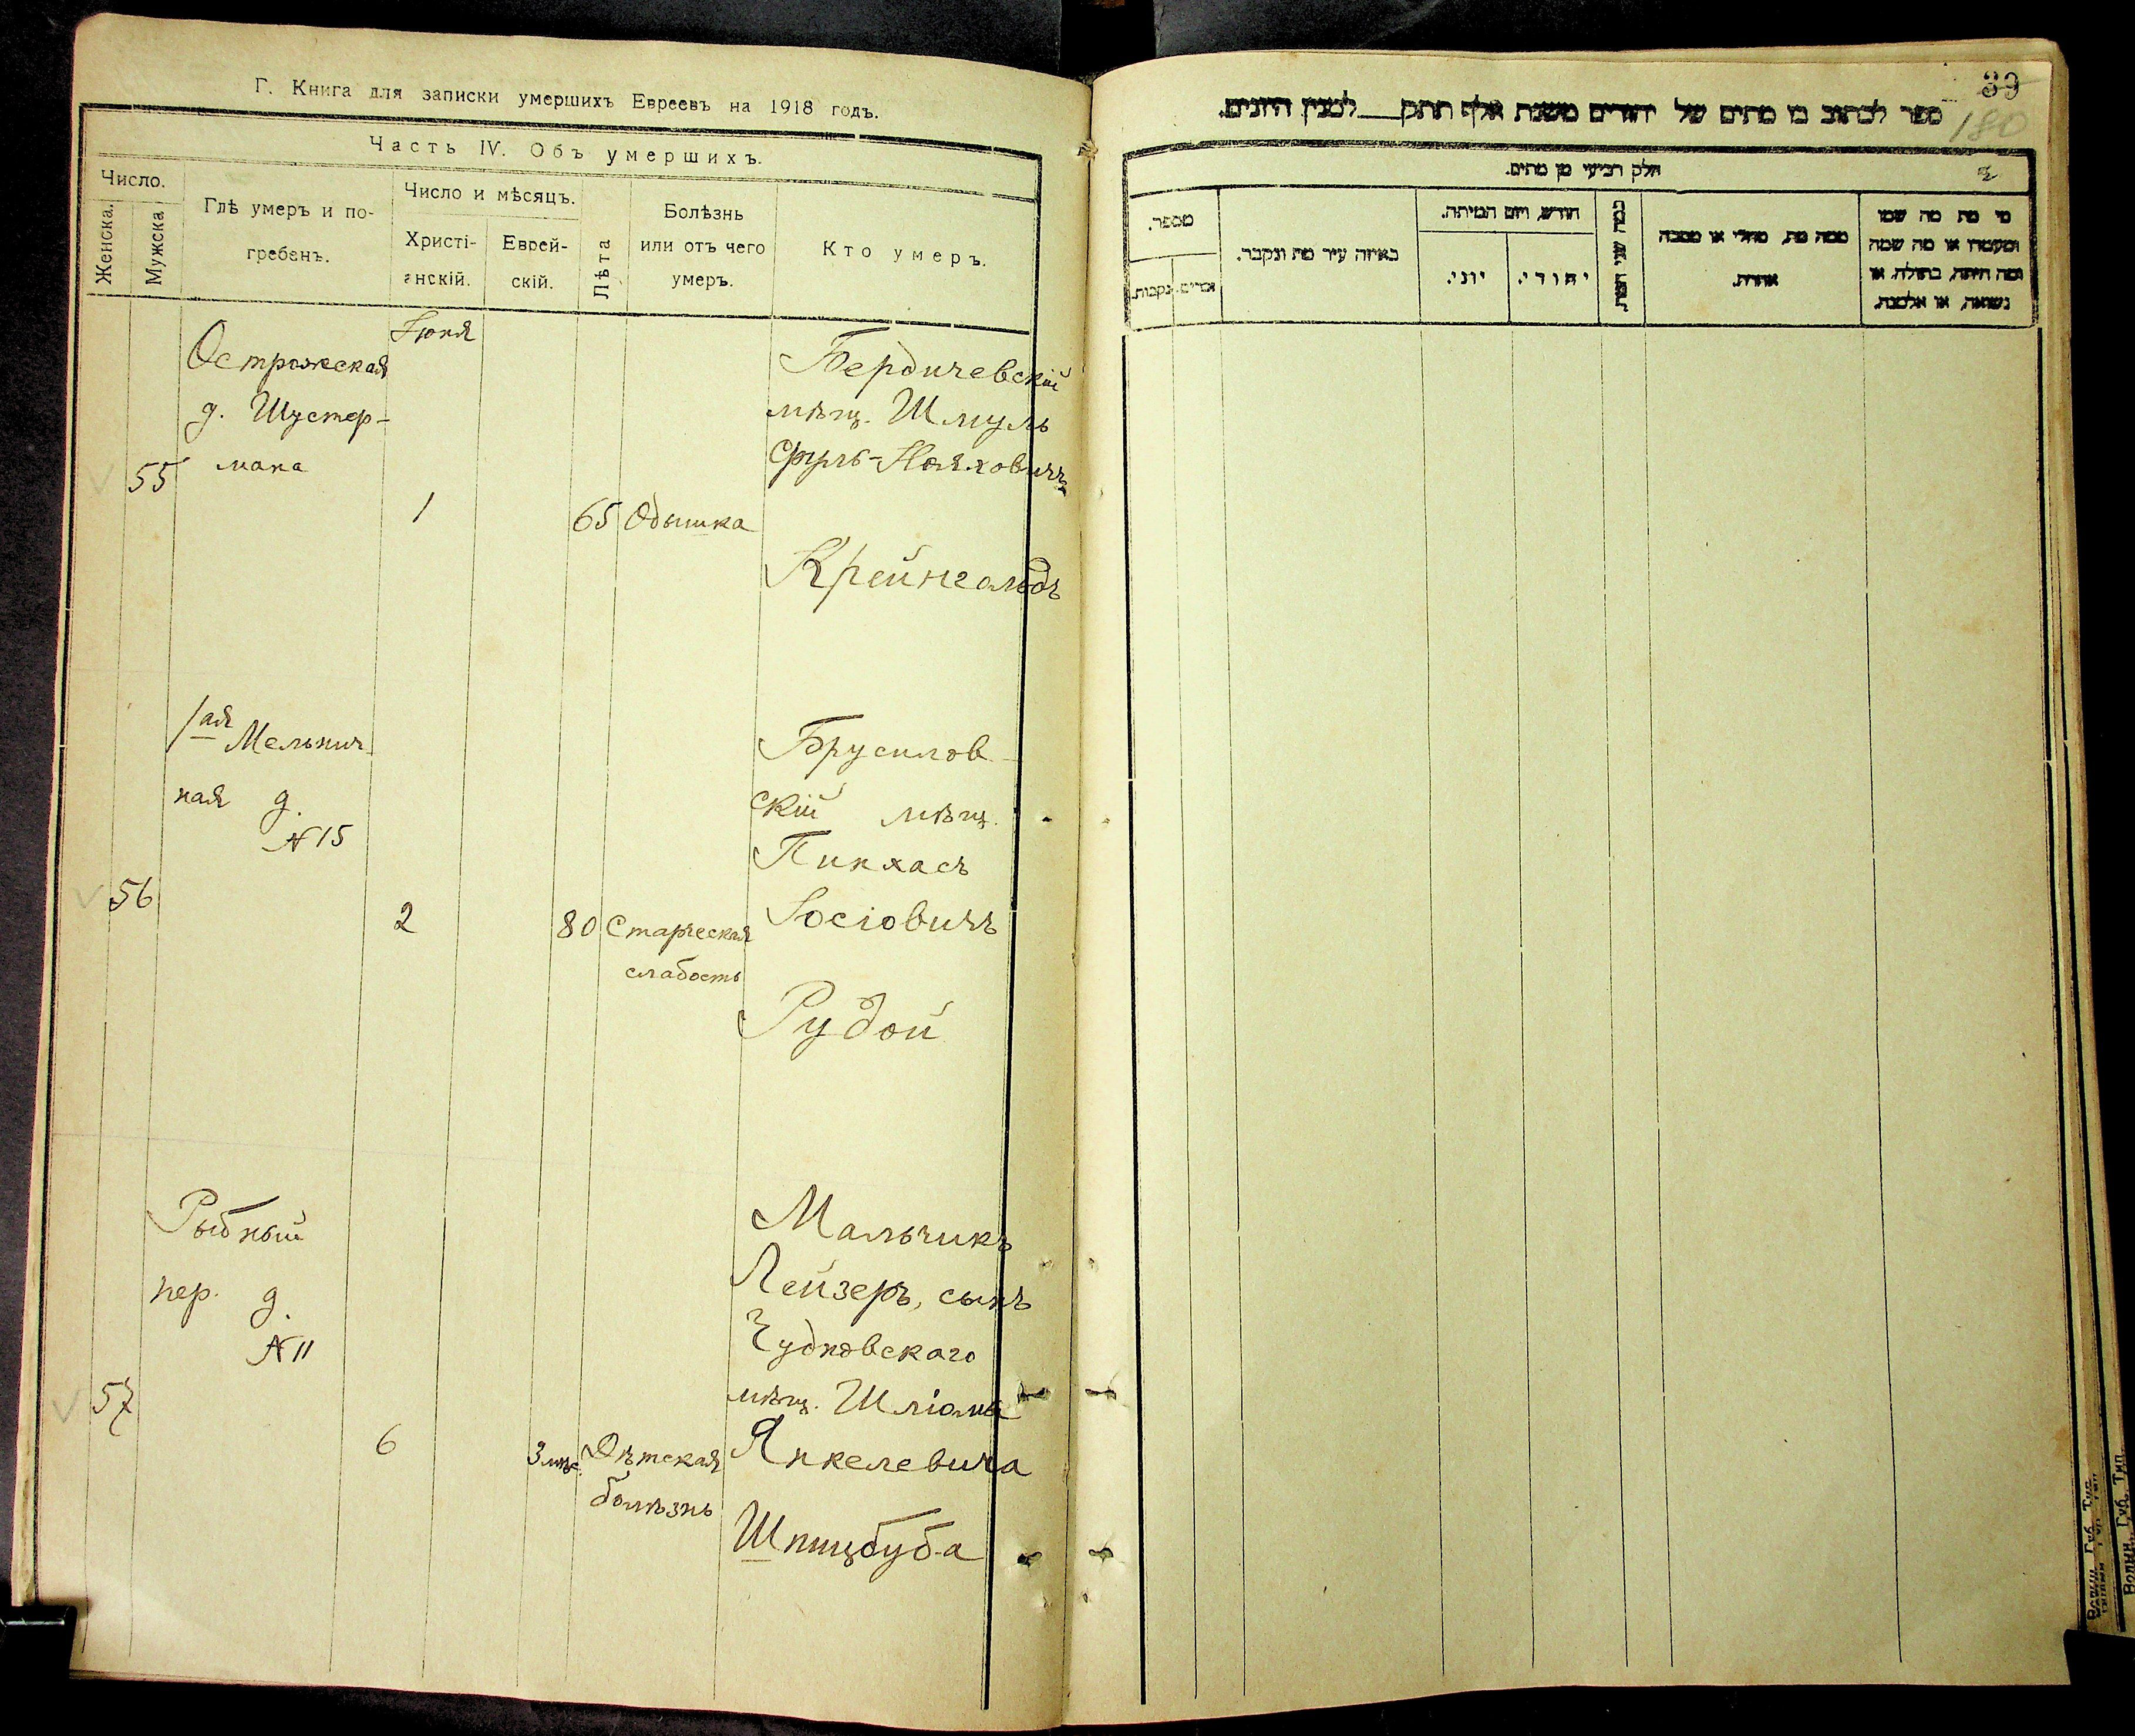 Г. Книга для записки умершихъ Евреевъ на 1918 годъ.
Часть IV. Объ умершихъ.
Число.
Женска.
Мужска
Гдѣ умеръ и по-
гребенъ.
Число и мѣсяцъ.
Христі-
анскій.
Еврей-
скій.
Лѣта
Болѣзнь
или отъ чего
умеръ.
Кто умеръ.
55
Острожская
д. Шустер-
мана
Іюня
1
65
Одышка
Бердичевскій
мѣщ. Шмуль
Сруль-Нояховичъ
Крейнгольдъ
56
1ая Мельнич
ная д.
№15
2
80
Старческая
слабость
Брусилов-
скій мѣщ.
Пинхасъ
Іосіовичъ
Рудой
57
Рыбный
пер. д.
№11
6
3 мѣс.
Дѣтская
болѣзнь
Мальчикъ
Лейзеръ, сынъ
Чудновскаго
мѣщ. Шліомы
Янкелевича
Шпицбуба
39
180
ספר לכתוב בו מתים של יהודים משנת אלף תתק___למנין היונים.
חלק רביעי מן מתים.
מספר.
זכרים.
נקבות.
באיזה עיר מת ונקבר.
חודש, ויום המיתה.
יוני.
יהודי.
כמה שני המת
ממה מת, מחלי או מסבה
אחרת.
מי מת מה שמו
ומעמדו או מה שמה
ומה היתה, בתולה, או
נשואה, או אלמנה.